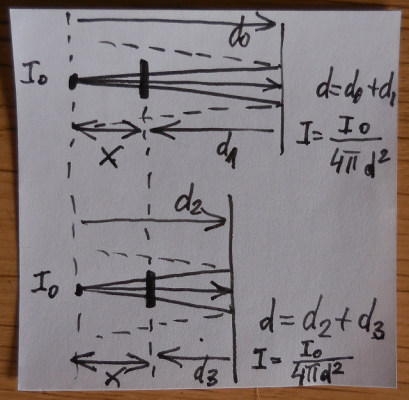 d₀
I₀
d = d₀ + d₁
I = I₀ / 4π d²
x
d₁
d₂
I₀
d = d₂ + d₃
I = I₀ / 4π d²
x
d₃